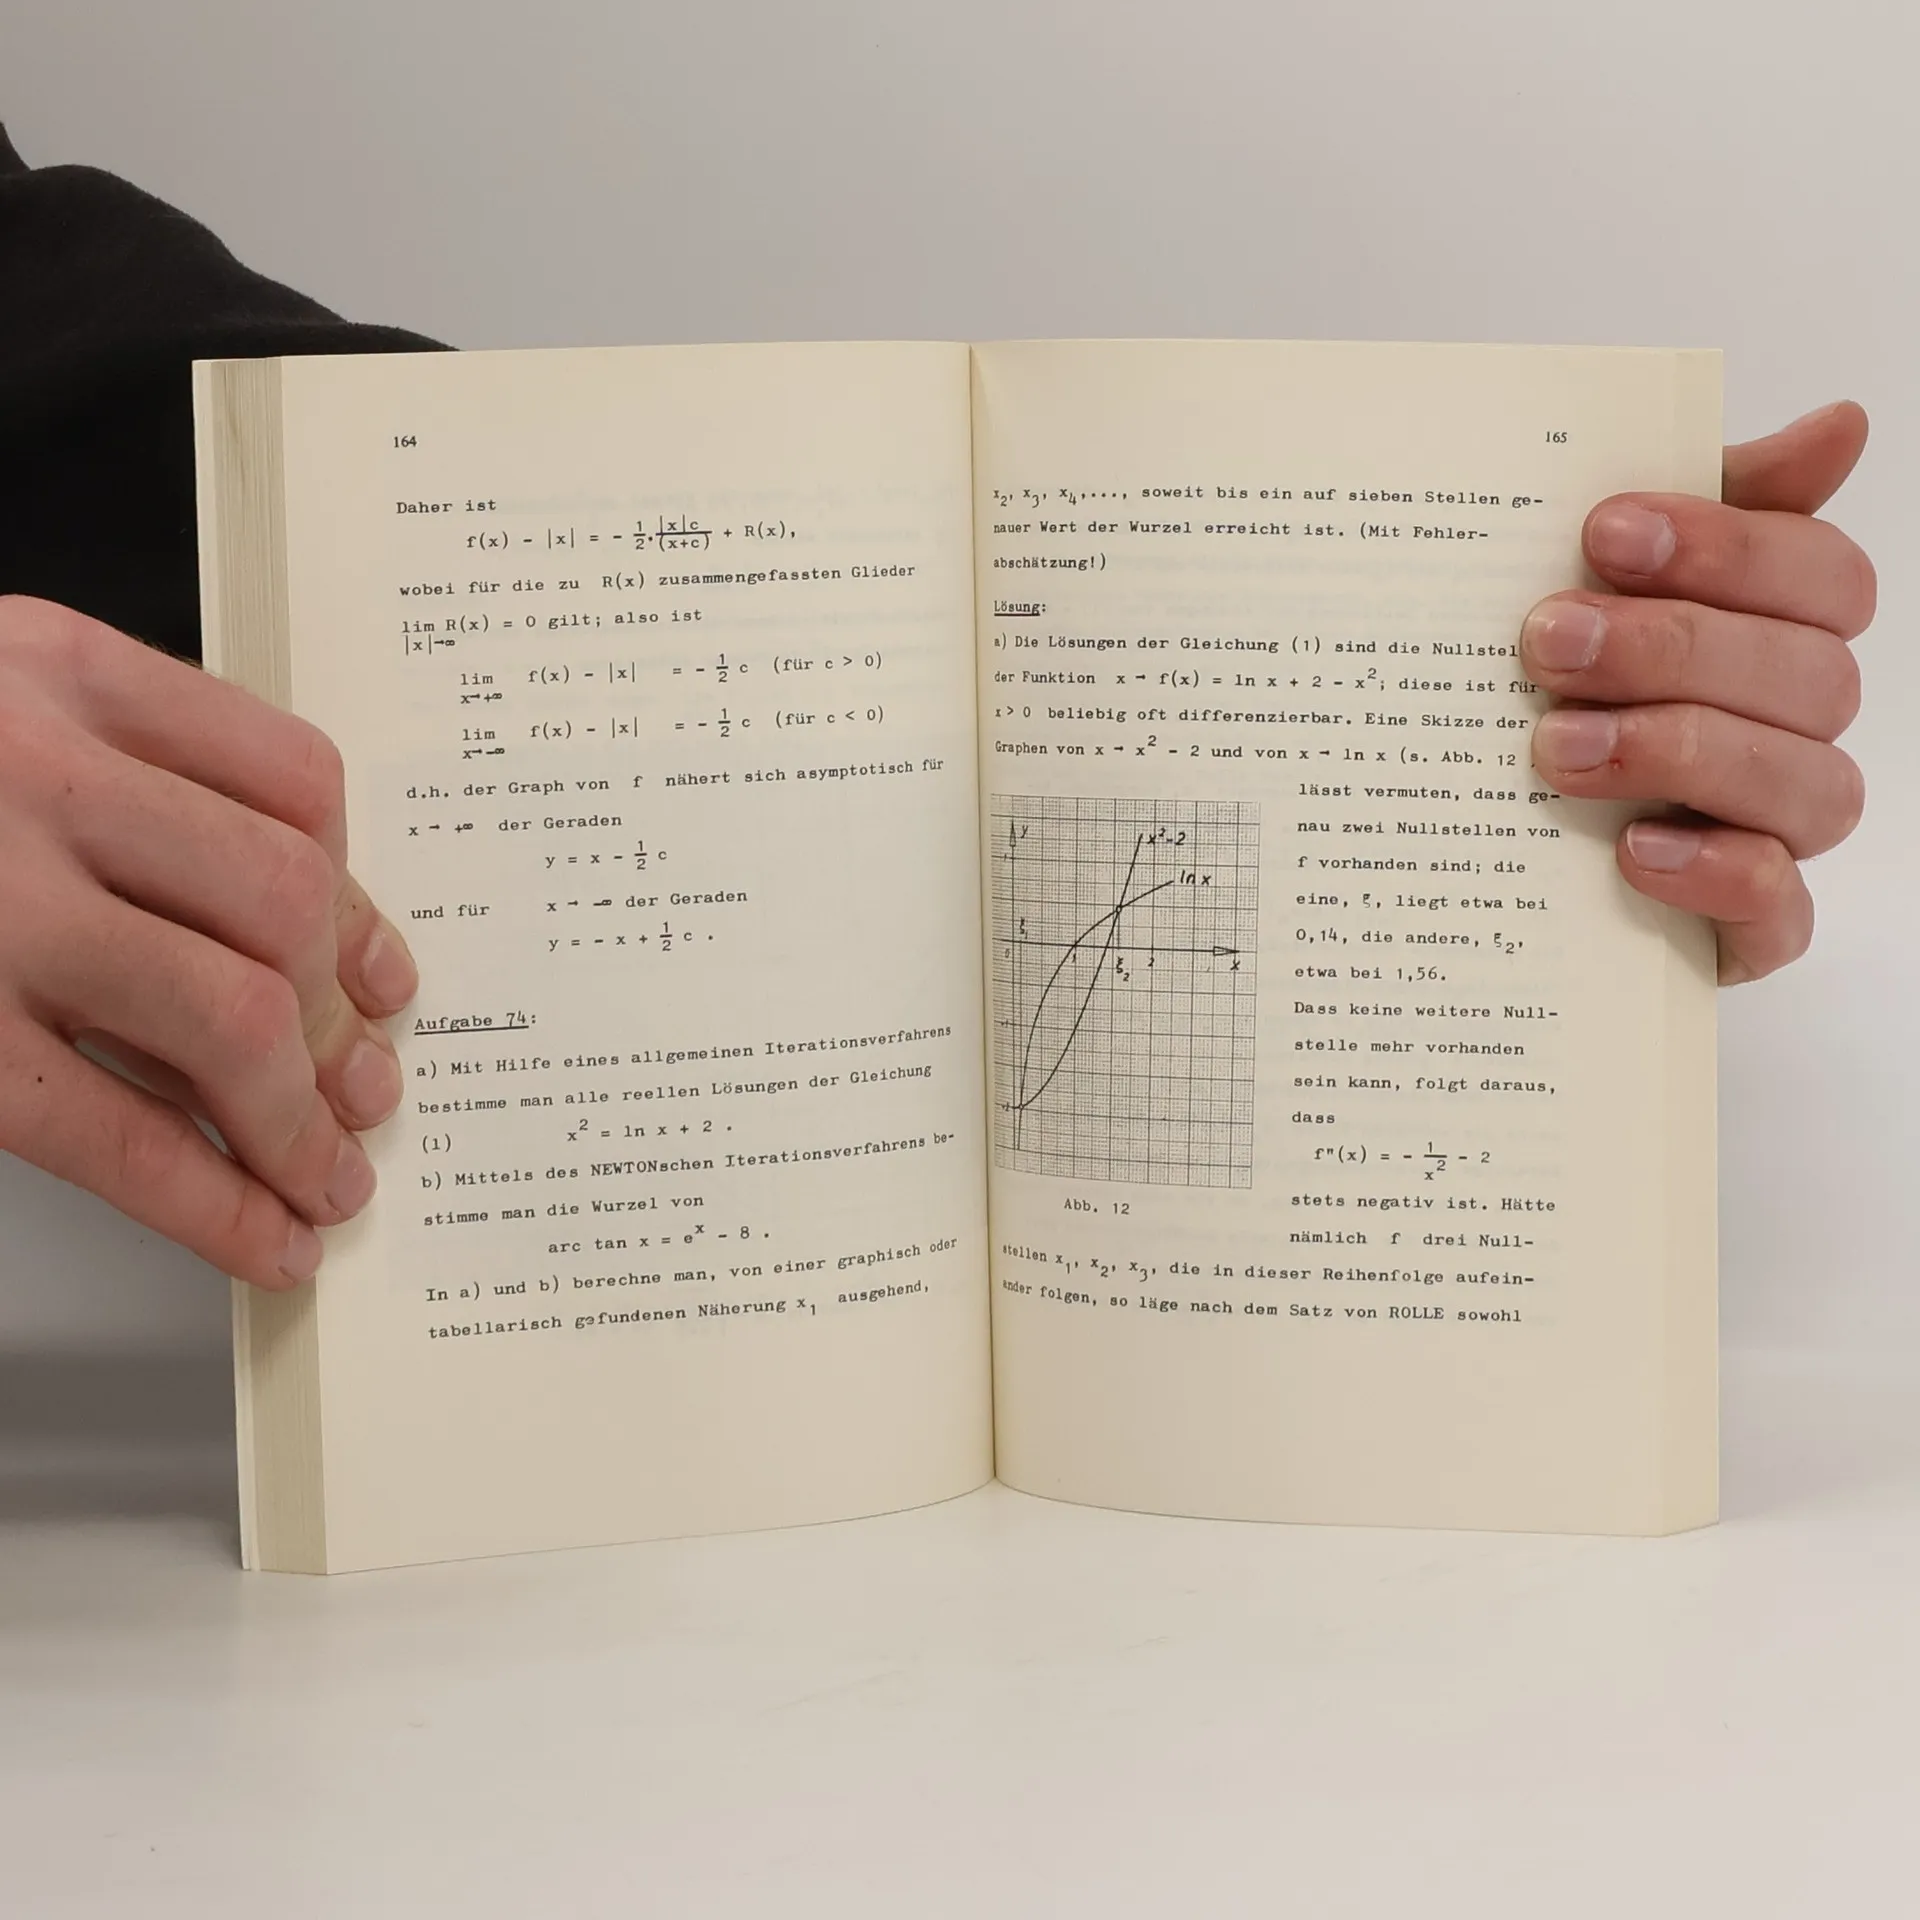 164
Daher ist
f(x) - |x| = - 1/2 · |x|c/(x+c) + R(x),
wobei für die zu R(x) zusammengefassten Glieder
lim R(x) = 0 gilt; also ist
|x|→∞
lim f(x) - |x| = - 1/2 c (für c > 0)
x→+∞
lim f(x) - |x| = - 1/2 c (für c < 0)
x→-∞
d.h. der Graph von f nähert sich asymptotisch für
x → +∞ der Geraden
y = x - 1/2 c
und für x → -∞ der Geraden
y = - x + 1/2 c .
Aufgabe 74:
a) Mit Hilfe eines allgemeinen Iterationsverfahrens
bestimme man alle reellen Lösungen der Gleichung
(1) x² = ln x + 2 .
b) Mittels des NEWTONschen Iterationsverfahrens be-
stimme man die Wurzel von
arc tan x = eˣ - 8 .
In a) und b) berechne man, von einer graphisch oder
tabellarisch gefundenen Näherung x₁ ausgehend,
165
x₂, x₃, x₄,..., soweit bis ein auf sieben Stellen ge-
nauer Wert der Wurzel erreicht ist. (Mit Fehler-
abschätzung!)
Lösung:
a) Die Lösungen der Gleichung (1) sind die Nullstel
der Funktion x → f(x) = ln x + 2 - x²; diese ist für
x > 0 beliebig oft differenzierbar. Eine Skizze der
Graphen von x → x² - 2 und von x → ln x (s. Abb. 12
lässt vermuten, dass ge-
nau zwei Nullstellen von
f vorhanden sind; die
eine, ξ, liegt etwa bei
0,14, die andere, ξ₂,
etwa bei 1,56.
Dass keine weitere Null-
stelle mehr vorhanden
sein kann, folgt daraus,
dass
f"(x) = - 1/x² - 2
stets negativ ist. Hätte
nämlich f drei Null-
y
x²-2
ln x
ξ₁
0
1
ξ₂
2
x
-1
-2
Abb. 12
stellen x₁, x₂, x₃, die in dieser Reihenfolge aufein-
ander folgen, so läge nach dem Satz von ROLLE sowohl